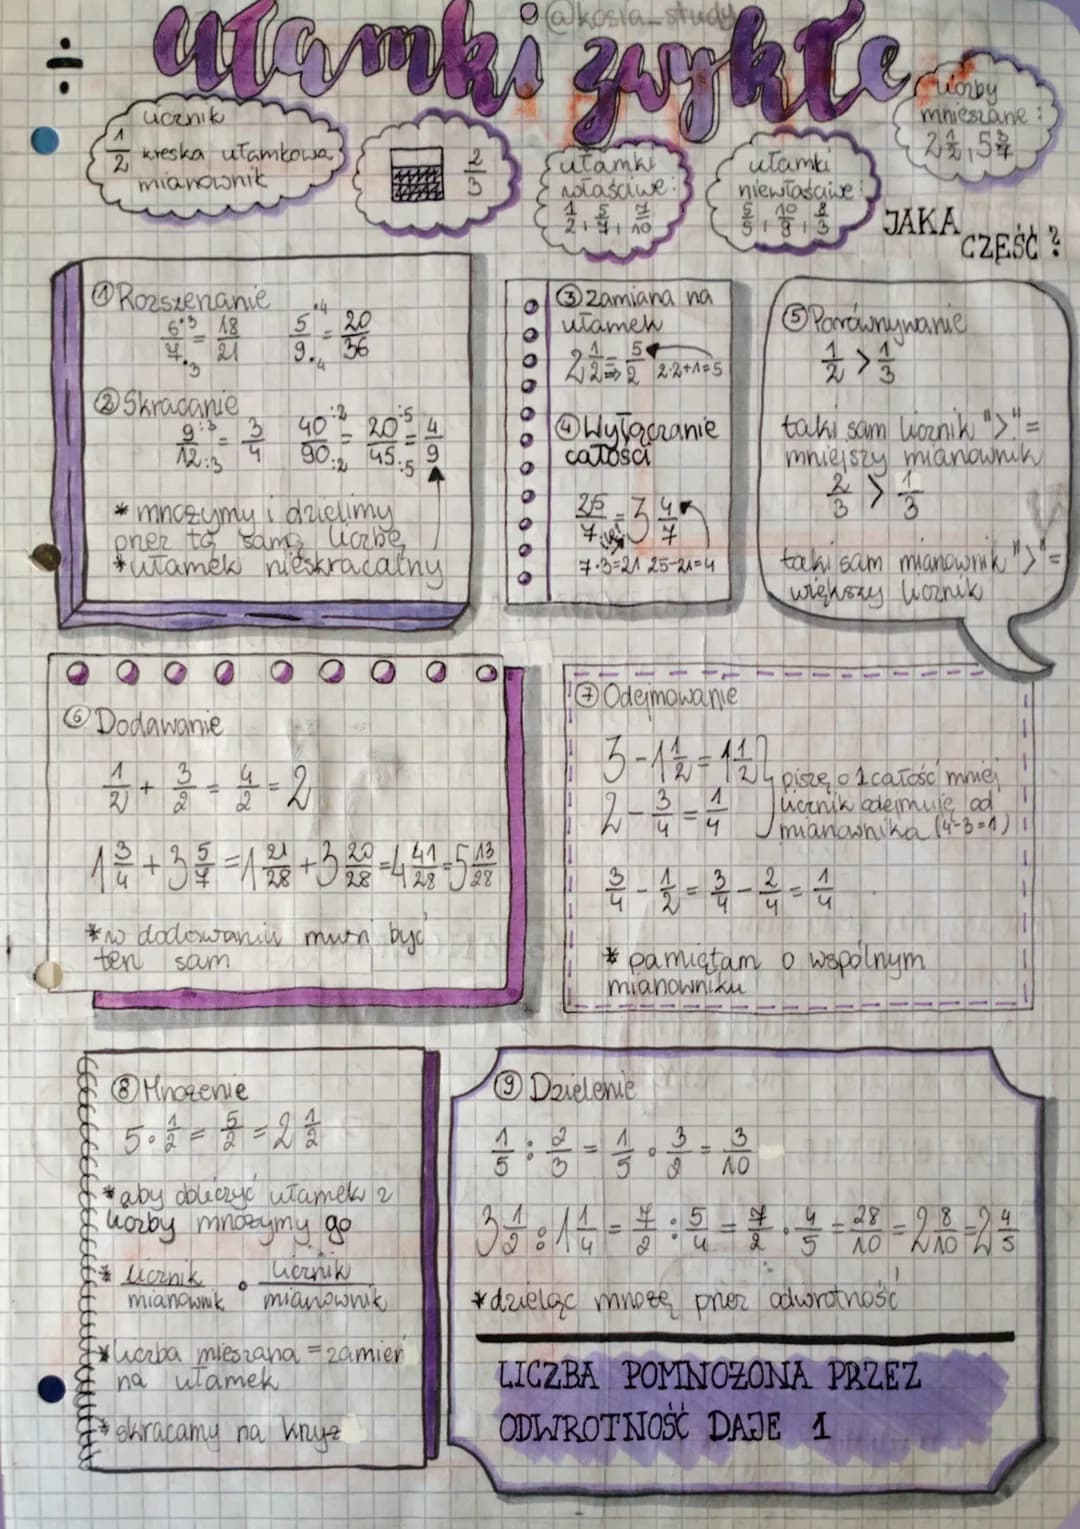 @kosia_study
Ułamki zwykłe
÷
licznik
1/2 kreska ułamkowa
mianownik
2/3
ułamki
właściwe:
1/2, 5/7, 7/10
ułamki
niewłaściwe:
5/5, 10/9, 8/3
liczby
mnieszane:
2 1/2, 5 3/7
JAKA
CZĘŚĆ?
① Rozszerzanie
6·3/7·3 = 18/21 5·4/9·4 = 20/36
② Skracanie
9:3/12:3 = 3/4 40:2/90:2 = 20:5/45:5 = 4/9
* mnożymy i dzielimy
przez tą samą liczbę
* ułamek nieskracalny
③ Zamiana na
ułamek
2 1/2 ⇒ 5/2 2·2+1=5
④ Wyłączanie
całości
25/7 = 3 4/7
7·3=21 25-21=4
⑤ Porównywanie
1/2 > 1/3
taki sam licznik ">" =
mniejszy mianownik
2/3 > 1/3
taki sam mianownik ">" =
większy licznik
⑥ Dodawanie
1/2 + 3/2 = 4/2 = 2
1 3/4 + 3 5/7 = 1 21/28 + 3 20/28 = 4 41/28 = 5 13/28
* w dodawaniu musi być
ten sam
⑦ Odejmowanie
3 - 1 1/2 = 1 1/2
2 - 3/4 = 1/4
piszę o 1 całość mniej
licznik odejmuję od
mianownika (4-3=1)
3/4 - 1/2 = 3/4 - 2/4 = 1/4
* pamiętam o wspólnym
mianowniku
⑧ Mnożenie
5 · 1/2 = 5/2 = 2 1/2
* aby obliczyć ułamek z
liczby mnożymy go
* licznik/mianownik · licznik/mianownik
* liczba mieszana = zamień
na ułamek
* skracamy na krzyż
⑨ Dzielenie
1/5 : 2/3 = 1/5 · 3/2 = 3/10
3 1/2 : 1 1/4 = 7/2 : 5/4 = 7/2 · 4/5 = 28/10 = 2 8/10 = 2 4/5
* dzieląc mnożę przez odwrotność
LICZBA POMNOŻONA PRZEZ
ODWROTNOŚĆ DAJE 1